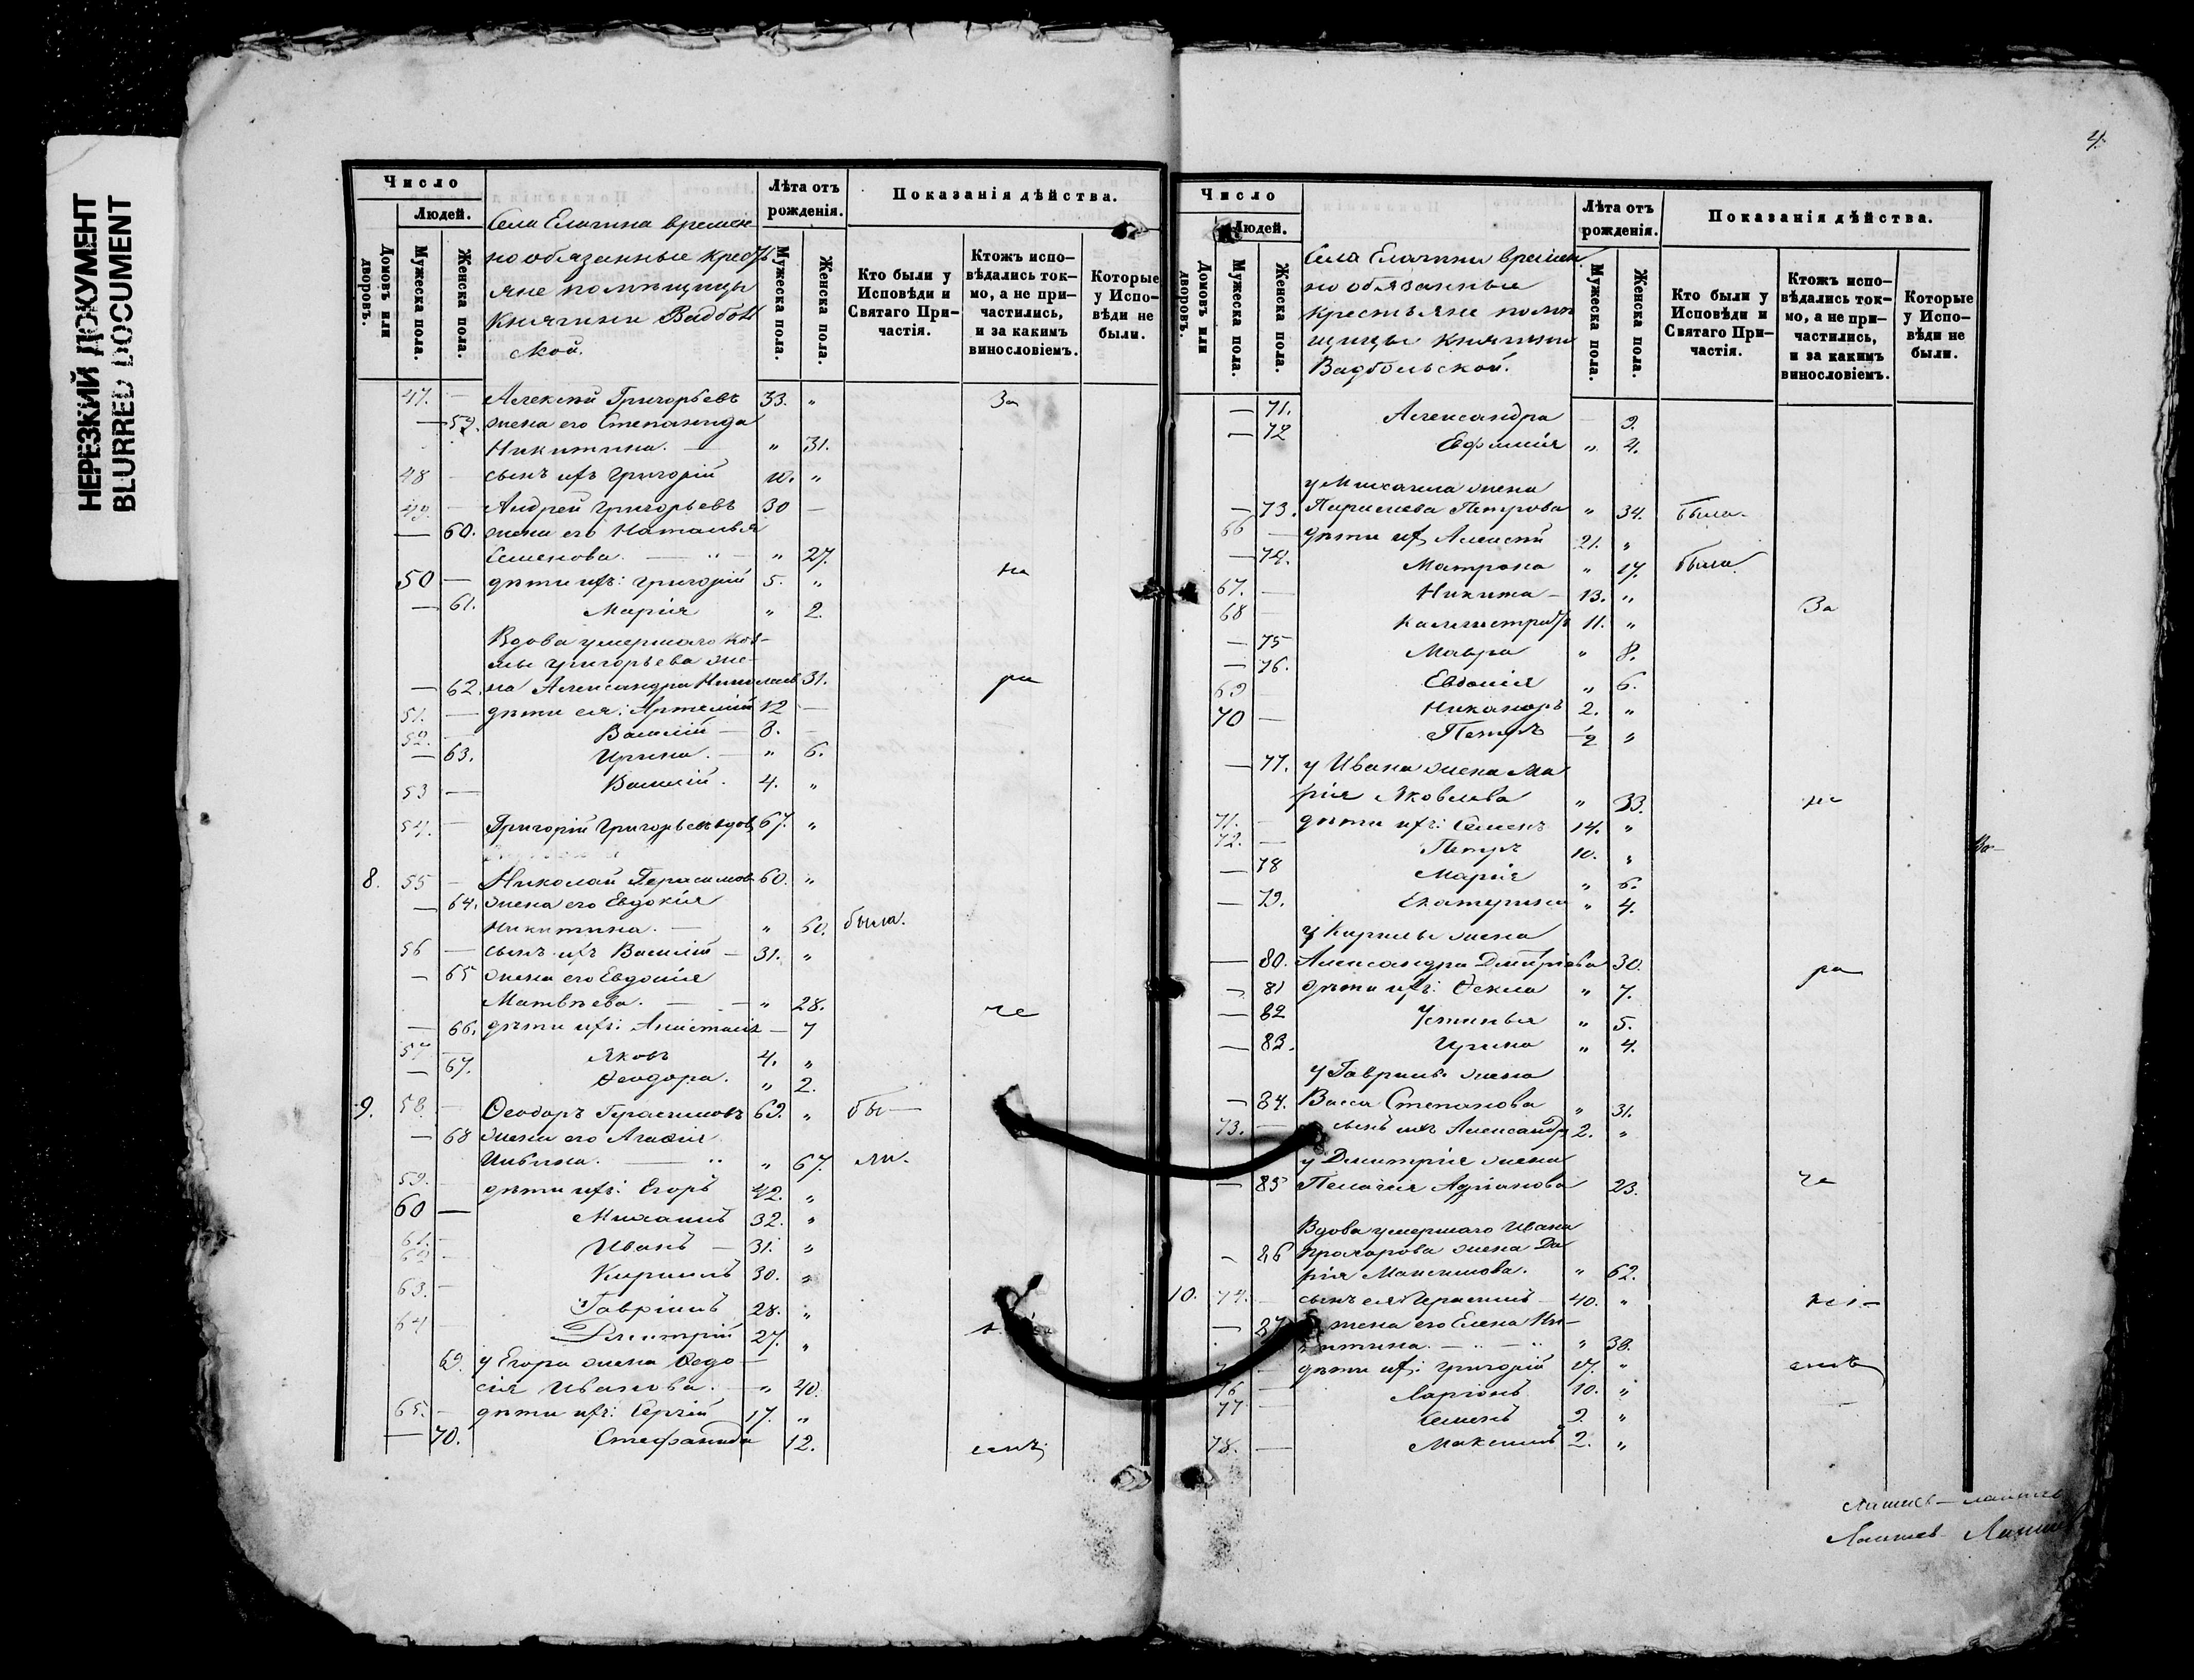 НЕРЕЗКИЙ ДОКУМЕНТ
BLURRED DOCUMENT
Число
Людей.
Домовъ или дворовъ.
Мужеска пола.
Женска пола.
Села Елагина времен
но обязанные крест
яне помѣщицы
Княгини Вадболь
ской.
Лѣта отъ рожденія.
Мужеска пола.
Женска пола.
Показанія дѣйства.
Кто были у Исповѣди и Святаго Причастія.
Ктожъ исповѣдались токмо, а не причастились, и за какимъ винословіемъ.
Которые у Исповѣди не были.
47. — Алексѣй Григорьевъ 33. „ За
— 59. жена его Степанида
Никитина. — „ 31.
48 — сынъ ихъ Григорій 10. „
49. — Андрей Григорьевъ 30 —
— 60. жена его Наталья
Семенова. — „ — „ 27.
50 — дѣти ихъ: Григорій 5. „ не
— 61. Марія „ 2.
Вдова умершаго Коз-
мы Григорьева же-
— 62. на Александра 31. ра
51. — дѣти ея: Артемій 12 —
52. — Василій — 8. —
— 63. Ирина. — „ 6.
53 — Василій. 4. „
54. — Григорій Григорьевъ вдов 67. „
8. 55 — Николай Герасимов 60. „
— 64. жена его Евдокія
Никитина. — „ 60. была.
56 — сынъ ихъ Василій — 31. „
— 65 жена его Евдокія
Матвѣева. — — „ 28. че
— 66. дѣти ихъ: Анастасія — 7
57 — Яковъ 4. „
— 67. Ѳеодора. „ 2.
9. 58. — Ѳеодоръ Герасимовъ 69. „ бы —
— 68 жена его Агафія
— „ „ 67. ли.
59. — дѣти ихъ: Егоръ 42. „
60 — Михаилъ 32. „
61. — Иванъ — 31. „
62 — Кирилъ 30. „
63. — Гавріилъ 28. „
64 — Дмитрій 27. „
69. у Егора жена Ѳедо —
сія Иванова. — „ 40.
65. — дѣти ихъ: Сергій 17. „
— 70. Стефанида 12. емъ
4.
Число
Людей.
Домовъ или дворовъ.
Мужеска пола.
Женска пола.
Села Елагина времен
но обязанные
крестьяне помѣ
щицы Княгини
Вадбольской.
Лѣта отъ рожденія.
Мужеска пола.
Женска пола.
Показанія дѣйства.
Кто были у Исповѣди и Святаго Причастія.
Ктожъ исповѣдались токмо, а не причастились, и за какимъ винословіемъ.
Которые у Исповѣди не были.
— 71. Александра — 9.
— 72 Евфимія „ 4.
у Михаила жена
— 73. Параскева Петрова „ 34. была.
66 — дѣти ихъ Алексѣй 21. „
— 74. Матрона „ 17. была.
67. — Никита — 13. „ За
68 — Каллистратъ 11. „
— 75 Мавра „ 8.
— 76. Евдокія „ 6.
69 — Никаноръ 2. „
70 — Петръ ½ „
— 77. у Ивана жена Ма
рія Яковлева „ 33. не
71. — дѣти ихъ: Семенъ 14. „
72. — Петръ 10. „
— 78 Марія „ 6.
— 79. Екатерина „ 4.
у Кирилы жена
— 80. Александра Дмитріева 30. ра
— 81 дѣти ихъ: Ѳекла „ 7.
— 82 Устинья „ 5.
— 83. Ирина „ 4.
у Гавриилы жена
— 84. Васса Степанова „ 31.
73. — сынъ ихъ Александръ 2. „
у Дмитрія жена
— 85 Пелагія Адріанова 23. че
Вдова умершаго Ивана
— 86 Прохорова жена Да
рія Максимова. „ 62.
10. 74. — сынъ ея Герасимъ 40. „ ні —
— 87 жена его Елена Ни —
китина. — „ — „ „ 38.
— дѣти ихъ: Григорій 17. „ емъ
76 — Ларіонъ 10. „
77 — Семенъ 9. „
78. — Максимъ 2. „